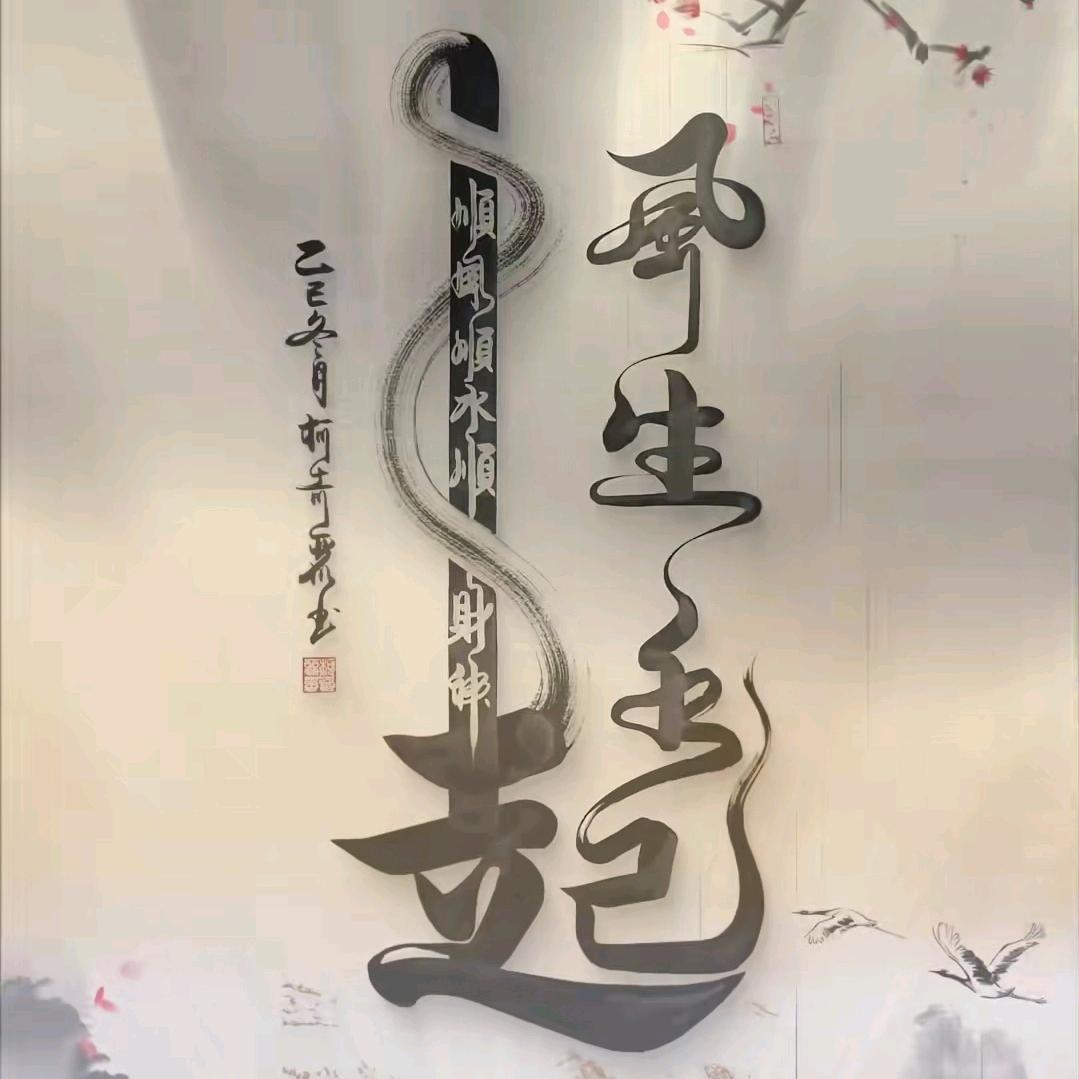 風生水起
順風順水順財神
乙巳冬月柯